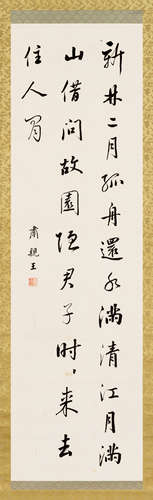 新林二月孤舟還水滿清江月滿
山借問故園隱君子时々来去
住人間
肅親王